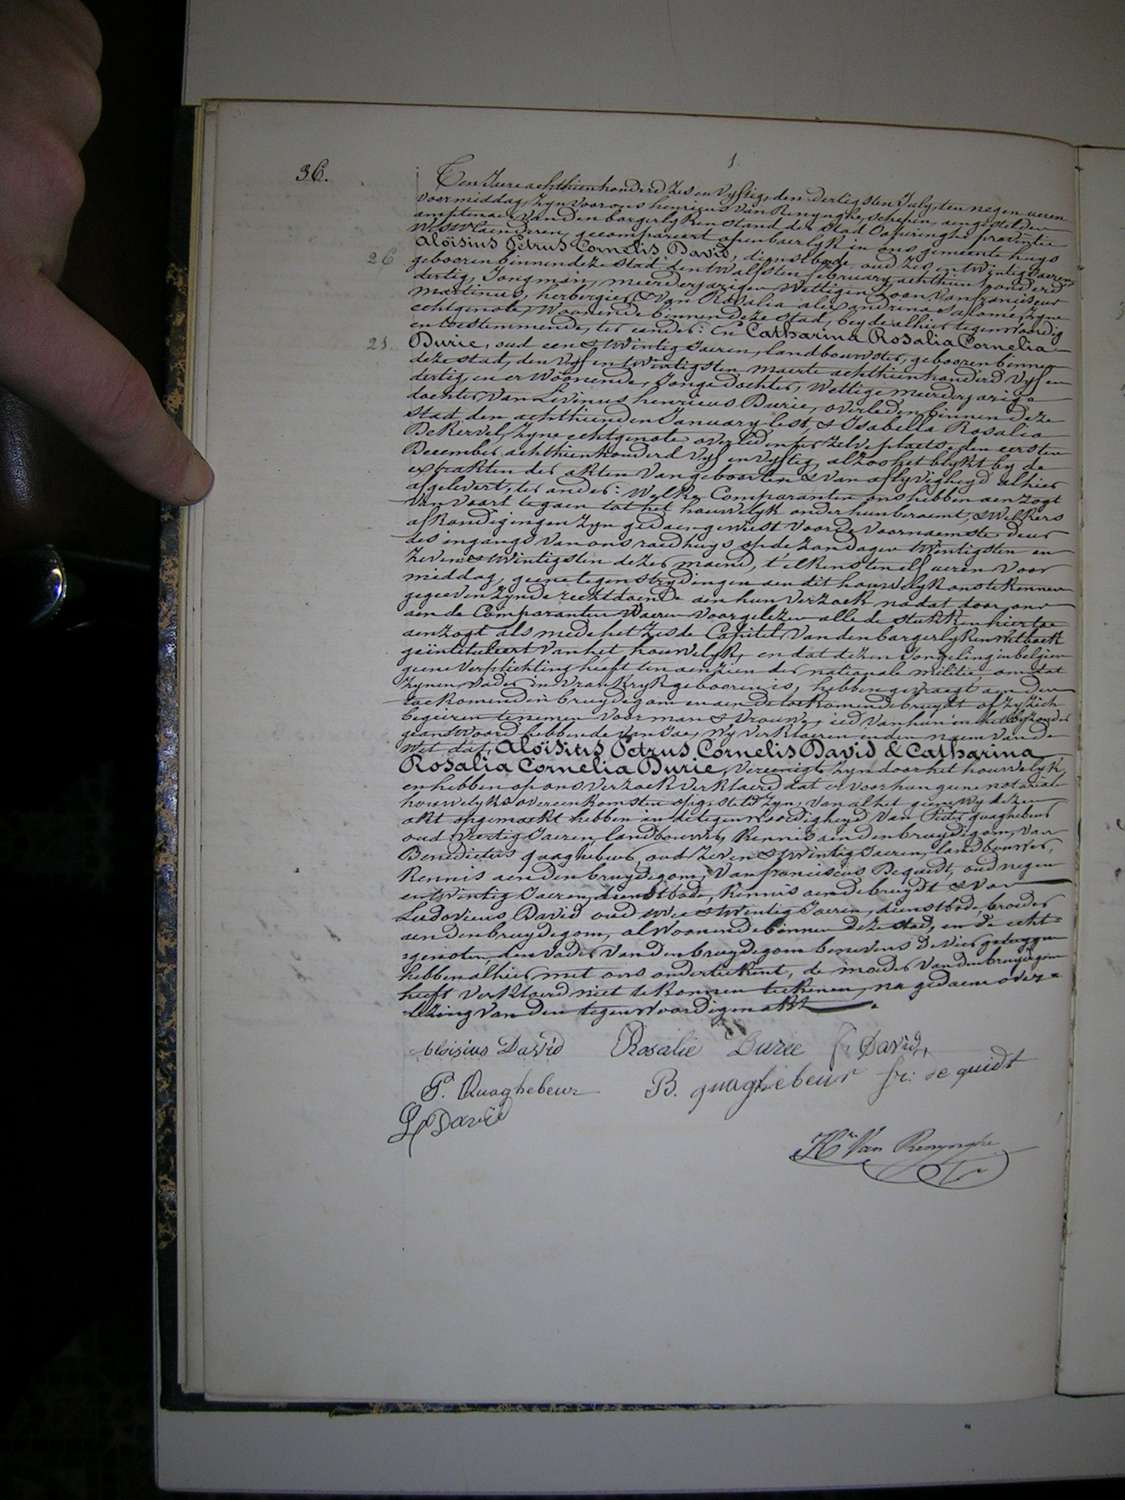 1.
36.
Ten Jure achthienhonderd zes en vyftig, den dertigsten July, ten negen ueren
voormiddag, zyn voor ons henricus Van Renynghe, schepen, aengestelden
amptenaer van den borgerlyken stand der stad Poperinghe provintie
Westvlaenderen, gecompareert openbaerlyk in ons gemeente huys
Aloisius Petrus Cornelis David, dienstbode, oud zes en twintig jaeren,
26
geboren binnen deze stad den twalfsten february achthien honderd
dertig, Jongman, meerderjarigen wettigen zoon van franciscus
martinus, herbergier, & van Rosalia alexandrina Salomé, zyne
echtgenote, woonende binnen deze stad, beyde alhier tegenwoordig
en toestemmende, ter eender: En Catharina Rosalia Cornelia
21
Durie, oud een & twintig Jaeren, landbouwster, geboren binnen
deze stad, den vyf en twintigsten maerte achthienhonderd vyf en
dertig, en er woonende, Jonge dochter, wettige meerderjarige
dochter van Livinus henricus Durie, overleden binnen deze
stad den achthienden January lest, & Isabella Rosalia
DeKervel, zyne echtgenote overleden ter zelve plaets den eersten
December achthienhonderd vyf en vyftig, alzoo het blykt by de
extrakten der akten van geboorten & van aflyvigheyd alhier
afgelevert, ter ander: Welke Comparanten ons hebben aenzogt
van voort te gaen tot het houwelyk onder hun beraemt, & welkers
afkondigingen zyn gedaen geweest voor de voornaemste deur
des ingangs van ons raedhuys op de zondagen twintigsten en
zeven & twintigsten dezer maend, t'elkens ten elf ueren voor
middag, geene tegenstrydingen aen dit houwelyk ons te kennen
gegeven zynde rechtdoende aen hun verzoek na dat door ons
aen de Comparanten waeren voorgelezen alle de stukken hiertoe
aenzogt als mede het zesde Capitel van den borgerlyken wetboek
geïntituleert van het houwelyk, en dat dezen Jongeling in belgien
geene verplichting heeft ten aenzien der nationale militie, omdat
zynen vader in Vrankryk geboren is, hebben gevraegt aen den
toekomenden bruydegom en aen de toekomende bruydt of zy zich
begeeren te nemen voor man & vrouw, ied van hun in het byzonder
geantwoord hebbende van Jae, wy verklaeren in den naem van de
Wet dat, Aloisius Petrus Cornelis David & Catharina
Rosalia Cornelia Durie, vereenigt zyn door het houwelyk,
en hebben op ons verzoek verklaerd dat er voor hun geene notariale
houwelyksovereenkomsten opgesteld zyn, van al het gene wy dezen
akt opgemaekt hebben in de tegenwoordigheyd van Pieter quaghebeur
oud veertig Jaeren, landbouwer, kennis aen den bruydegom, van
Benedictus quaghebeur, oud zeven & twintig Jaeren, landbouwer,
kennis aen den bruydegom, van franciscus Dequidt, oud negen
en twintig Jaeren, dienstbode, kennis aen de bruydt & van
Ludovicus David oud twee & twintig Jaeren, dienstbode, broeder
aen den bruydegom, al woonende binnen deze stad, en de echt-
genoten, den vader van den bruydegom benevens de vier getuygen
hebben alhier met ons onderteekent, de moeder van den bruydegom
heeft verklaerd niet te konnen teekenen, na gedaene over-
lezing van den tegenwoordigen akt.
Aloisius David Rosalie Durie Fr David,
P. Quaghebeur B. quaghebeur fr: de quidt
L David
Hri Van Renynghe